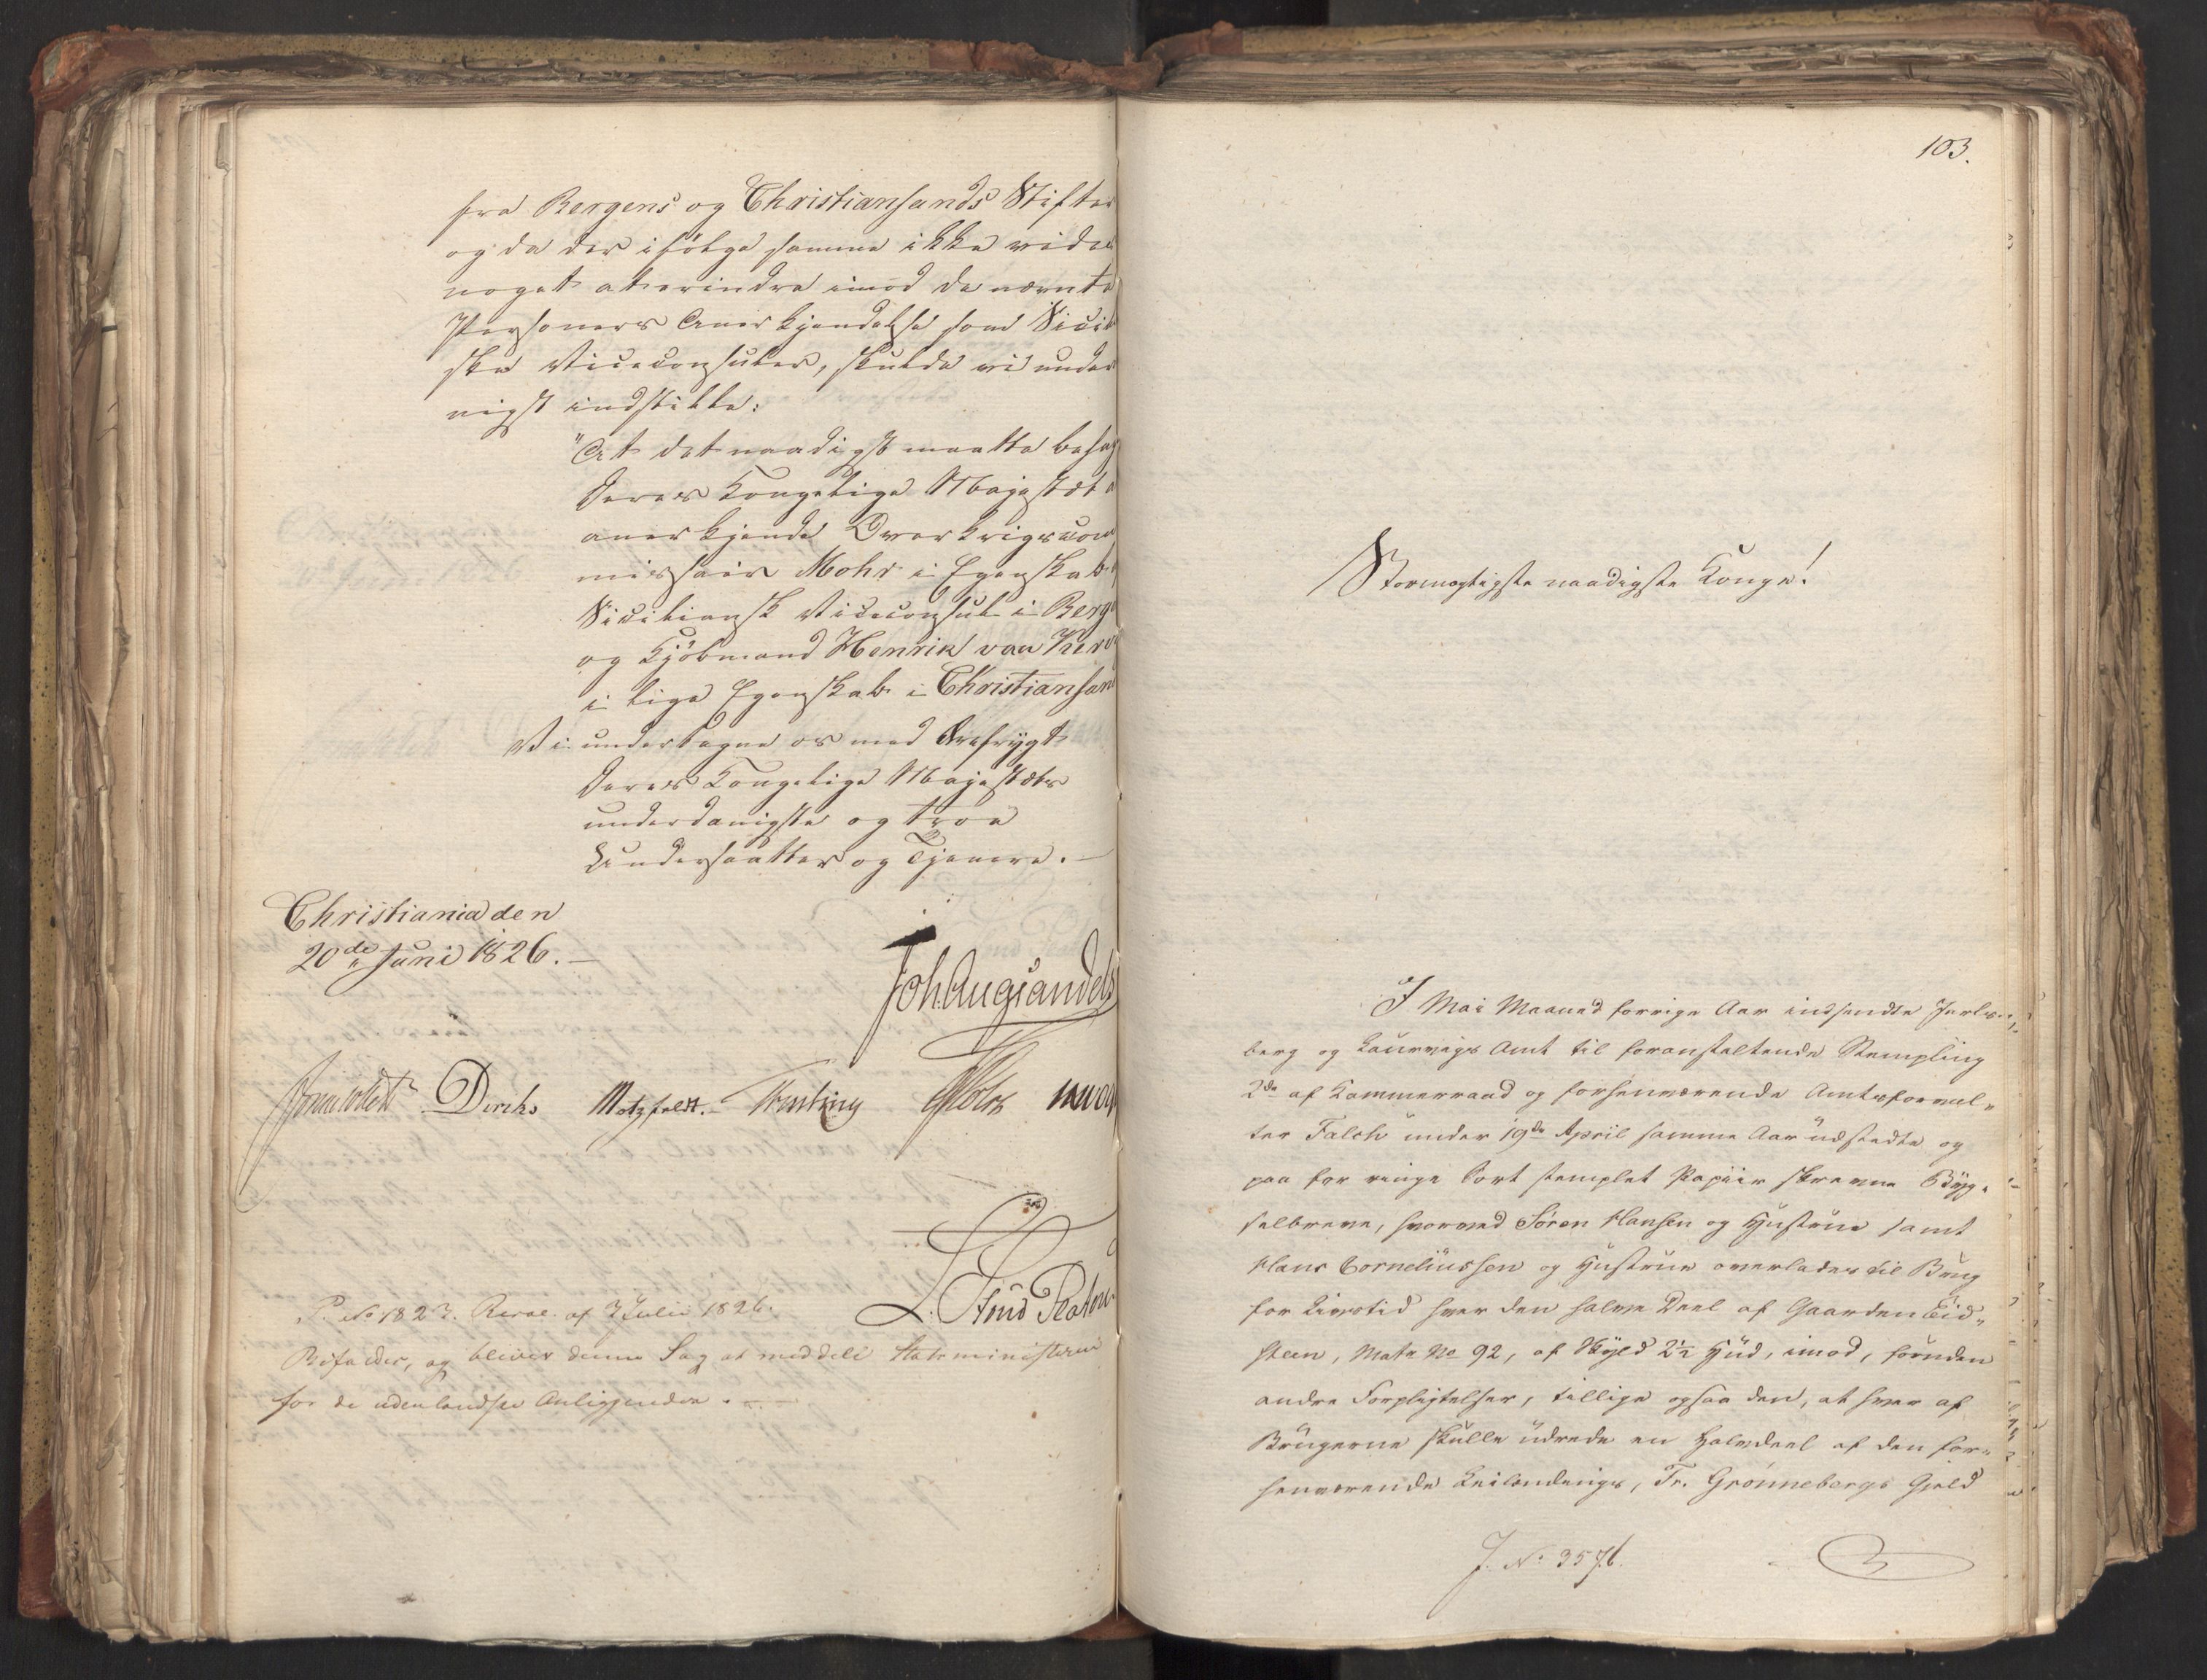 fra Bergens og Christiansands Stifter
og da der ifölge samme ikke vides
noget at erindre imod de nævnte
Personers Anerkjendelse som Sicili
ske Viceconsuler, skulde vi under
nigst indstille:
"At det naadigst maatte behag
Deres Kongelige Majestæt a
anerkjende Overkrigscom
missair Mohr i Egenskab
Siciliansk Viceconsul i Berg
og Kjöbmand Henrik van
i lige Egenskab i Christiansan
Vi undertegne os med Ærefrygt
Deres Kongelige Majestæts
underdanigste og troe
Undersaatter og Tjenere. —
Christiania den
20de Juni 1826. —
Joh. Aug. Sandels
Diriks Motzfeldt. Treschow
L. Stoud Platou
P. No 1823. Resol. af 3 Julii 1826.
Bifaldes, og bliver denne Sag at meddele Statsministeren
for de udenlandske Anliggender. —
103.
Stormægtigste naadigste Konge!
I Mai Maaned forrige Aar indsendte Jarls-
berg og Laurvigs Amt til foranstaltende Stempling
2de af Kammerraad og forhenværende Amtsforval-
ter Falch under 19de April samme Aar udstedte og
paa for ringe Sort stemplet Papiir skrevne Byg-
selbreve, hvorved Sören Hansen og Hustrue samt
Hans Corneliussen og Hustrue overlades til Brug
for Livstid hver den halve Deel af Gaarden Eid-
steen, Matr No 92, af Skyld 2½ Hud, imod, foruden
andre Forpligtelser, tillige ogsaa den, at hver af
Brugerne skulle udrede en Halvdeel af den for-
henværende Leilændings, Fr. Grönnebergs Gield
J. No 3576.